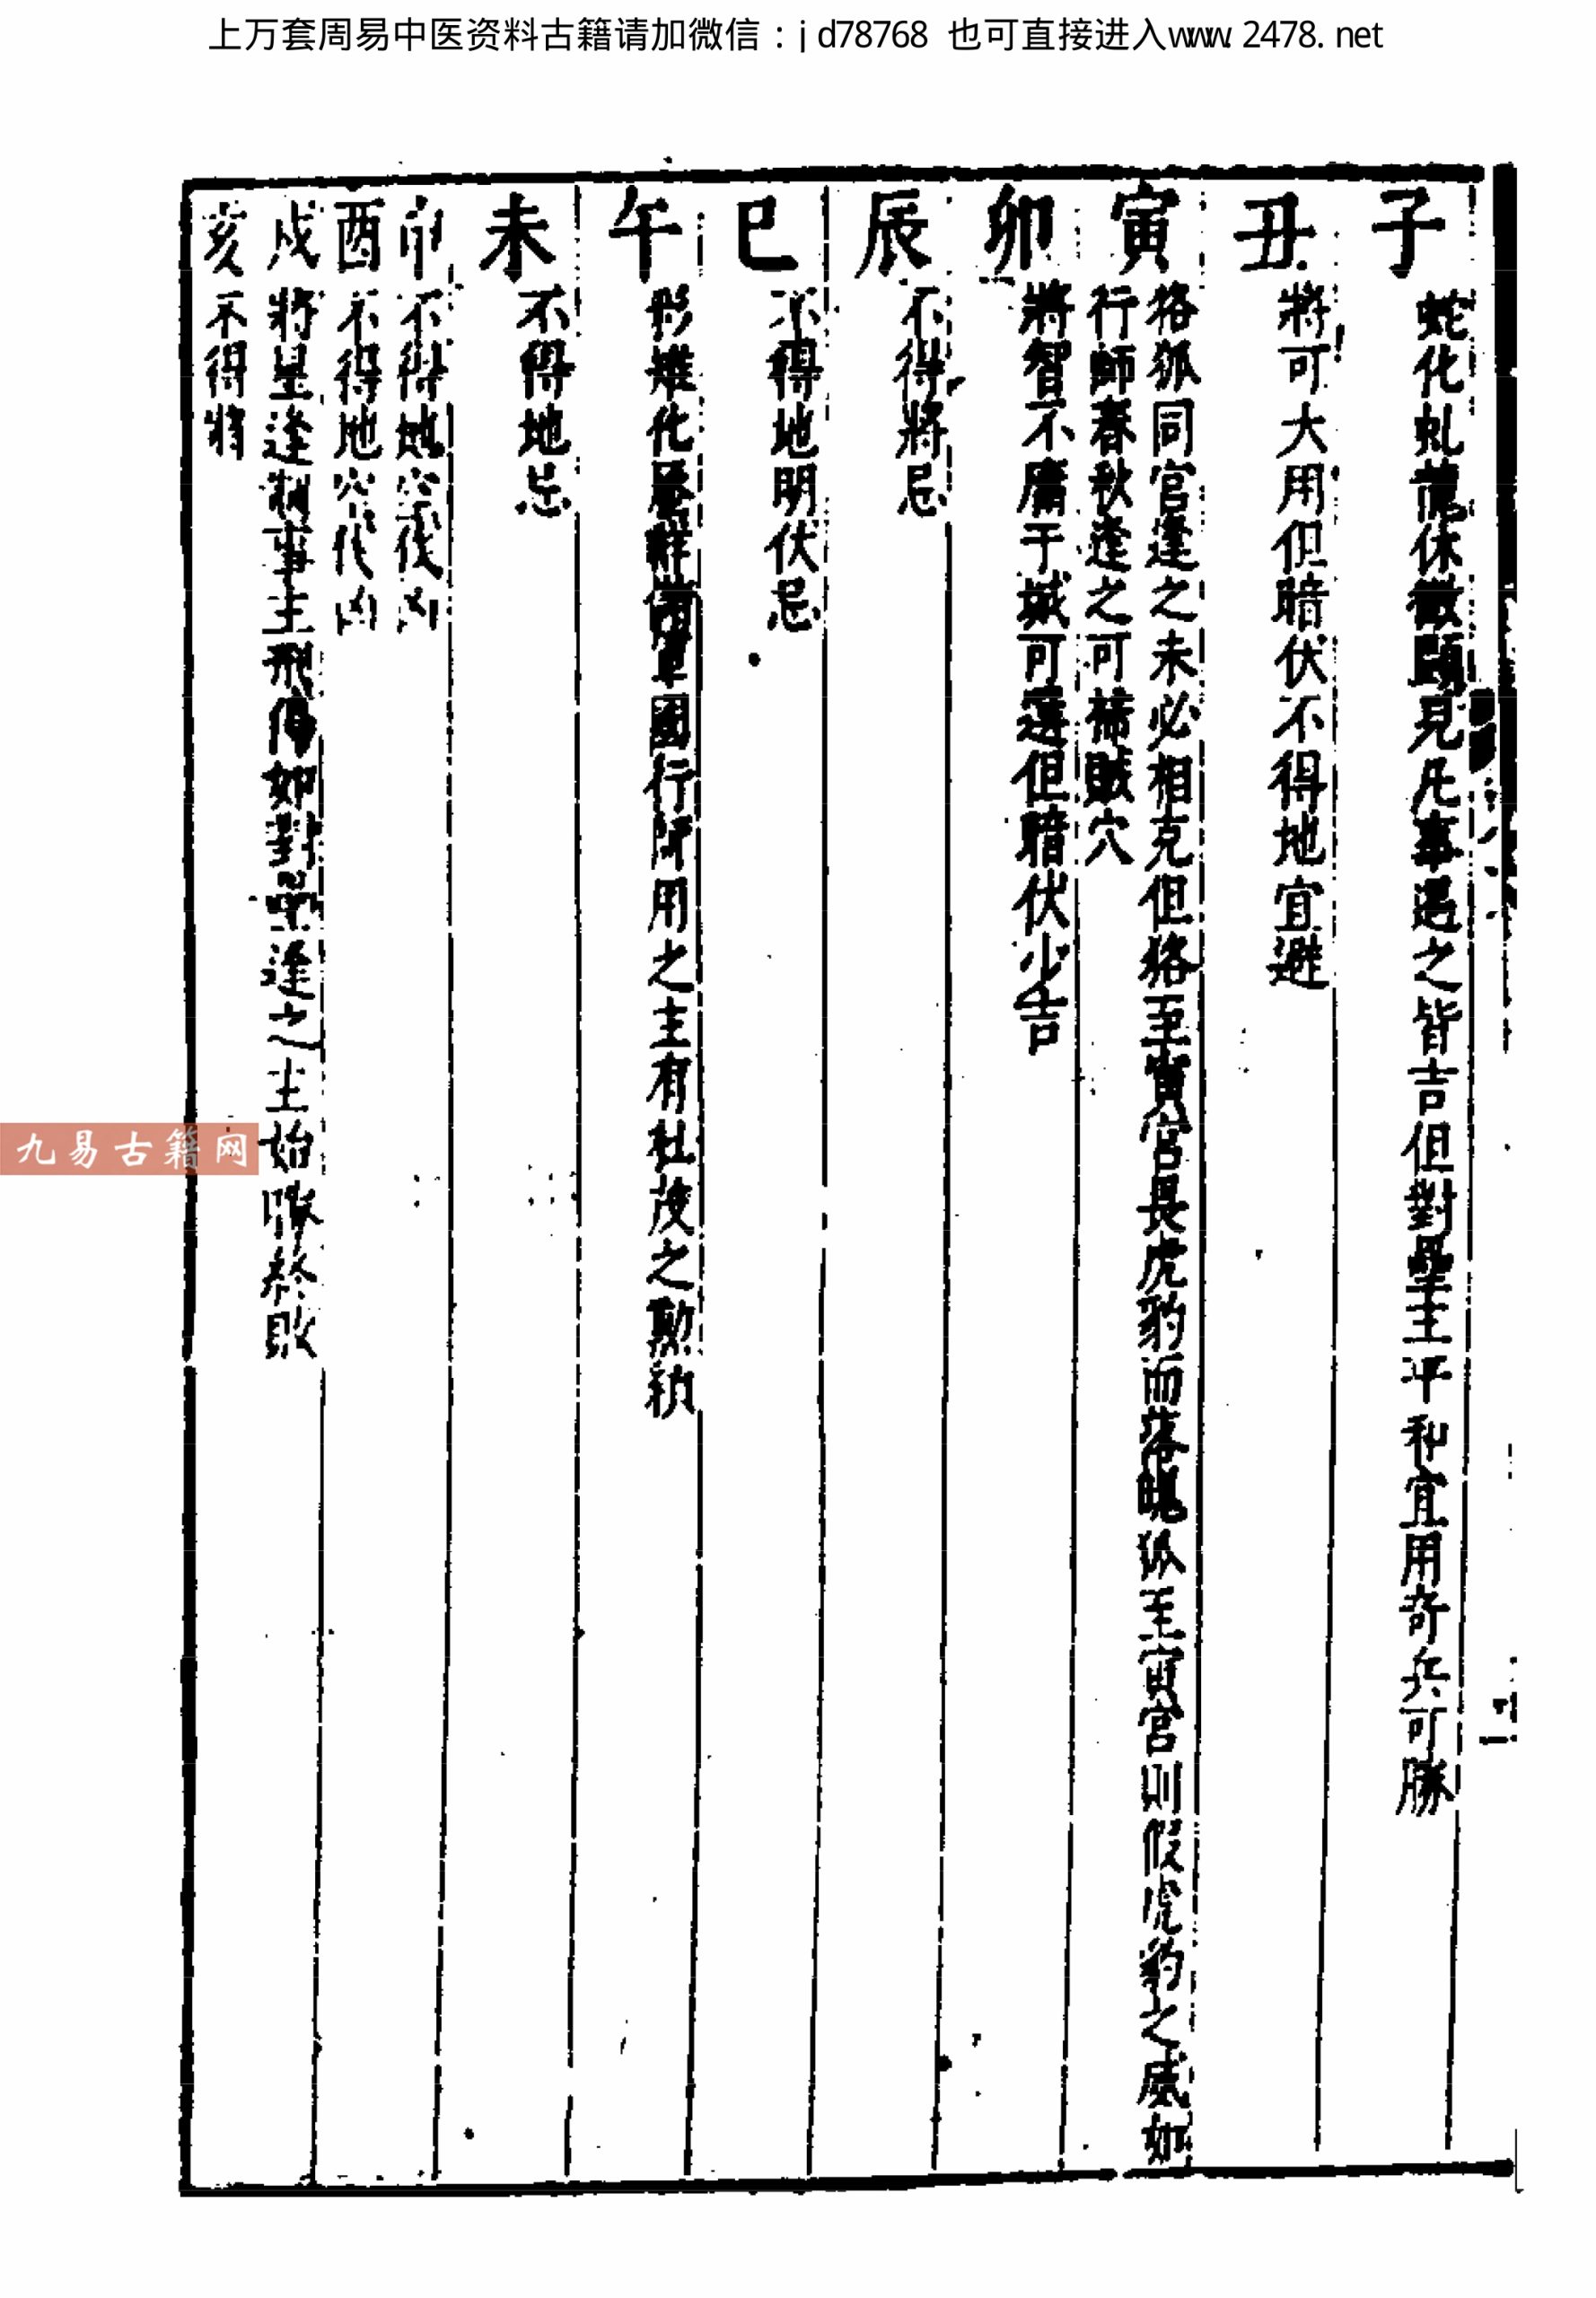 上万套周易中医资料古籍请加微信：jd78768 也可直接进入www.2478.net
子 蛇化虬龍休徵顯見凡事遇之皆吉但對壘主平和宜用奇兵可勝
丑 將可大用但暗伏不得地宜避
寅 狢狐同宫逢之未必相克但狢至寅宫長虎豹而落魄狐至寅宮則假虎豹之威如
行師春秋逢之可掃賊穴
卯 將智不庸于誠可選但暗伏少吉
辰 不得將忌
巳 不得地明伏忌
午 形雉化蜃辭備軍國行師用之主有杜茂之勲績
未 不得地忌
申 不得地空伐凶
酉 不得地空伐凶
戌 將星逢制事主刑傷如對壘逢之主始勝終敗
亥 不得將
九易古籍网